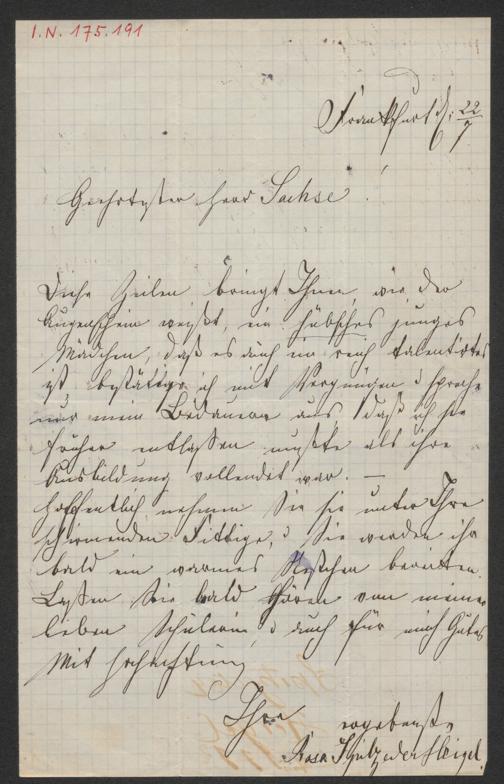 I.N. 175.191
Frankfurt d. 22/7
Geehrtester Herr Sachse!
Diese Zeilen bringt Ihnen, wie der
Augenschein weißt, ein hübsches junges
Mädchen, daß es auch ein reich talentirtes
ist, bestätige ich mit Vergnügen u spreche
nur mein Bedauern aus, daß ich sie
früher entlaßen mußte als ihre
Ausbildung vollendet war. —
Hoffentlich nehmen Sie sie unter Ihre
schirmenden Fittige, u Sie werden ihr
bald ein warmes Nestchen bereiten.
Laßen Sie bald hören von meiner
lieben Schülerin u auch für mich Gutes
Mit Hochachtung
Ihre ergebenste
Rosa Spitzeder